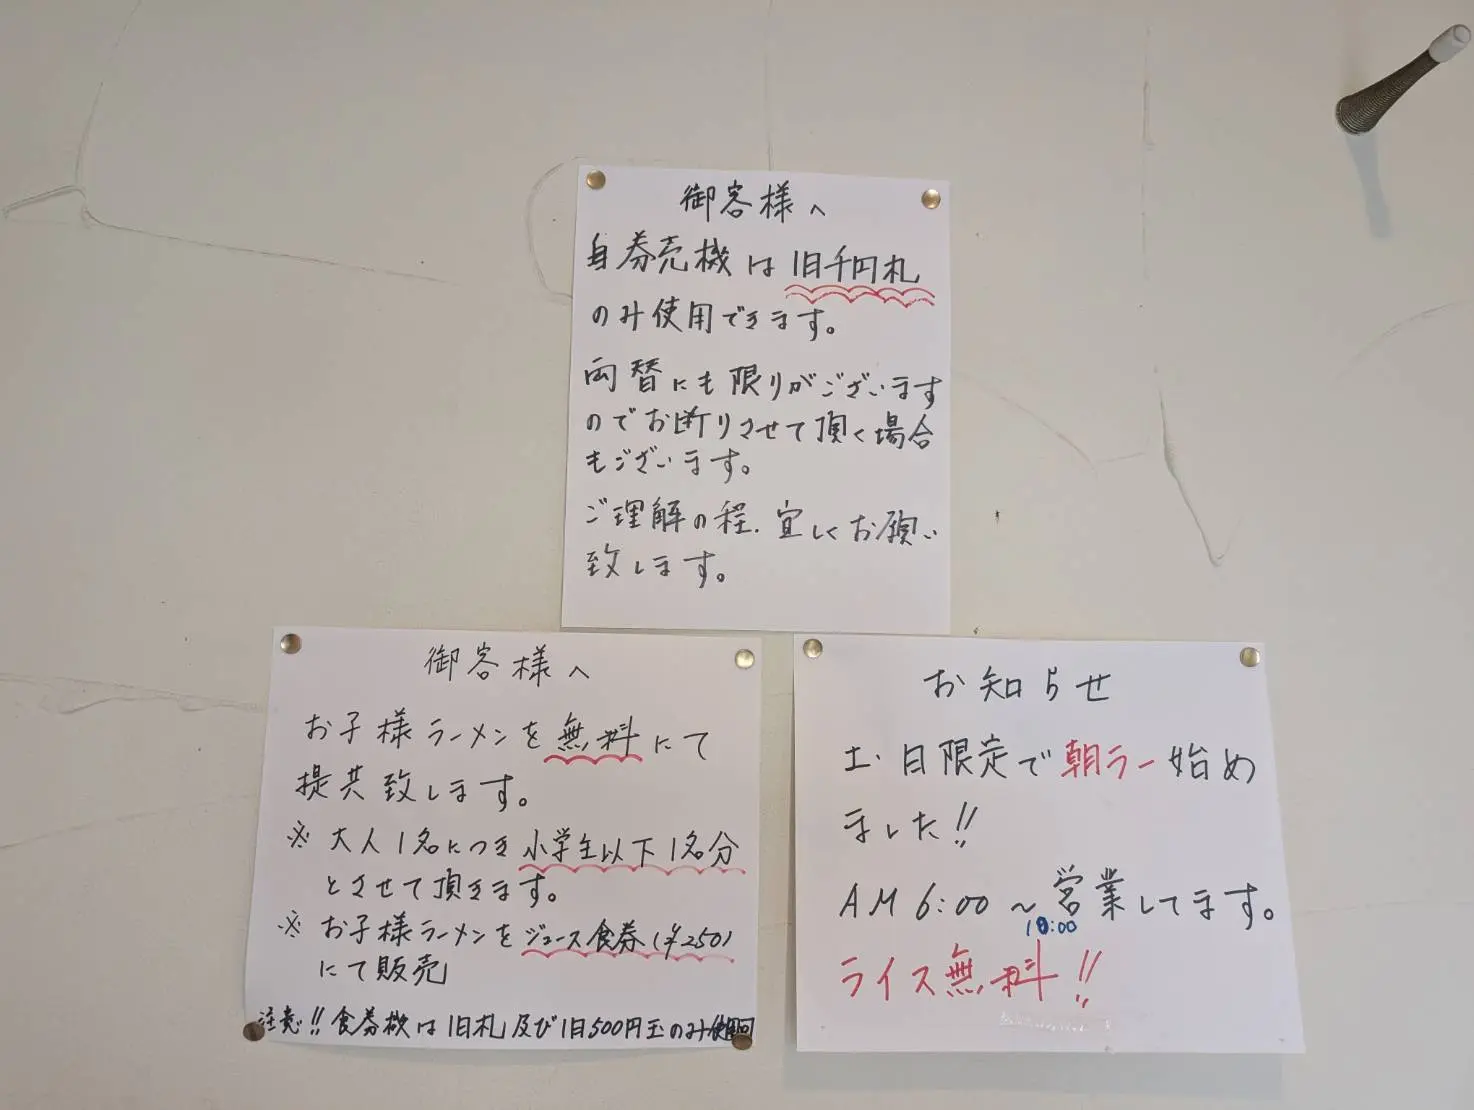 御客様へ
自券売機は旧千円札
のみ使用できます。
両替にも限りがございます
のでお断りさせて頂く場合
もございます。
ご理解の程、宜しくお願い
致します。
御客様へ
お子様ラーメンを無料にて
提共致します。
※大人1名につき小学生以下1名分
とさせて頂きます。
※お子様ラーメンをジュース食券(¥250)
にて販売
注意!!食券機は旧札及び旧500円玉のみ使用可
お知らせ
土・日限定で朝ラー始め
ました!!
AM6:00~営業してます。
10:00
ライス無料!!